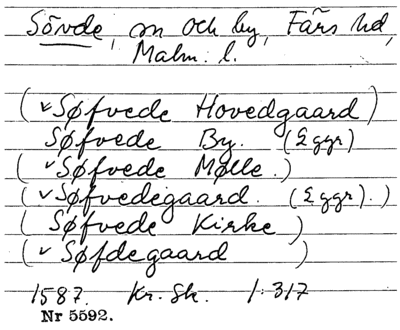 Sövde, sn och by, Färs hd,
Malm. l.
(v Søfvede Hovedgaard)
Søfvede By. (Eggr)
(v Søfvede Mølle.)
(v Søfvedegaard. (Eggr).)
(Søfvede Kirke)
(v Søfdegaard)
1587. Kr. Sk. 1:317
Nr 5592.